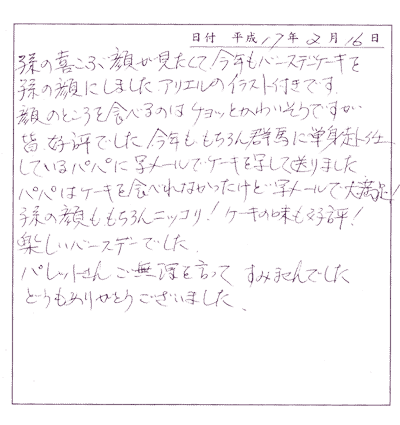 日付 平成17年2月16日
孫の喜こぶ顔が見たくて今年もバースデーケーキを
孫の顔にしました アリエルのイラスト付きです。
顔のところを食べるのはチョッとかわいそうですが
皆好評でした 今年ももちろん群馬に単身赴任
しているパパに写メールでケーキを写して送りました
パパはケーキを食べれなかったけど写メールで大満足!
孫の顔ももちろんニッコリ! ケーキの味も好評!
楽しいバースデーでした。
パレットさん ご無理を言って すみませんでした
どうもありがとうございました、